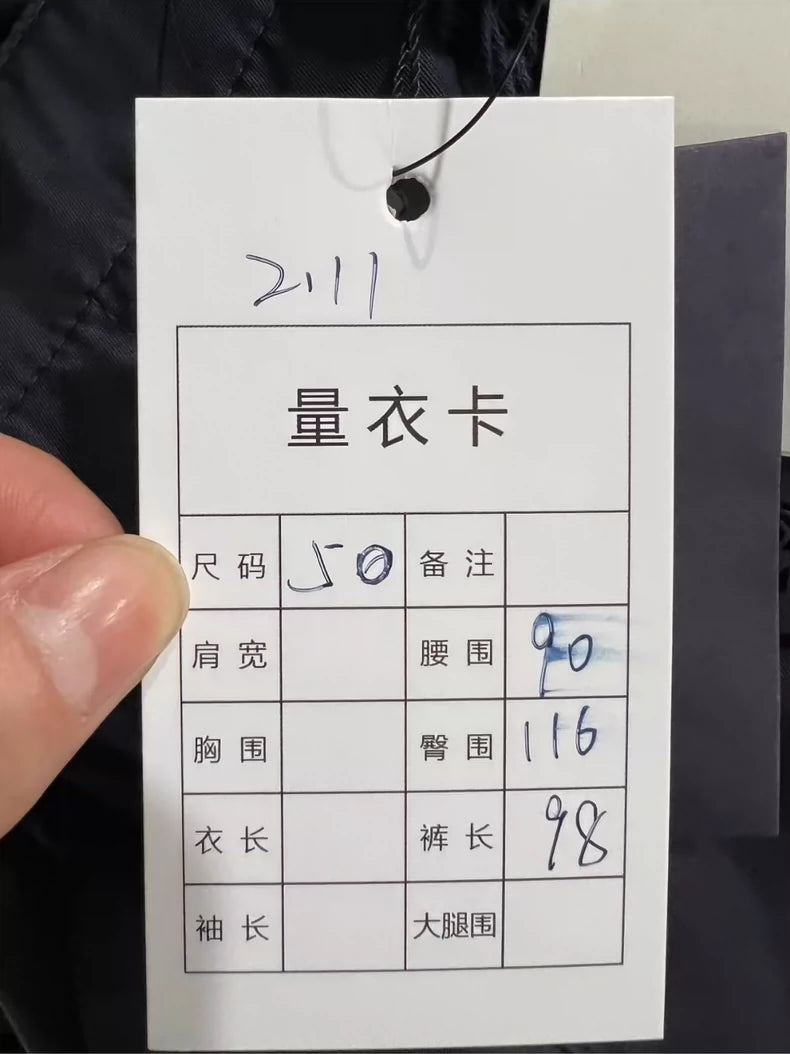 2.11
量衣卡
尺码 50 备注
肩宽 腰围 90
胸围 臀围 116
衣长 裤长 98
袖长 大腿围